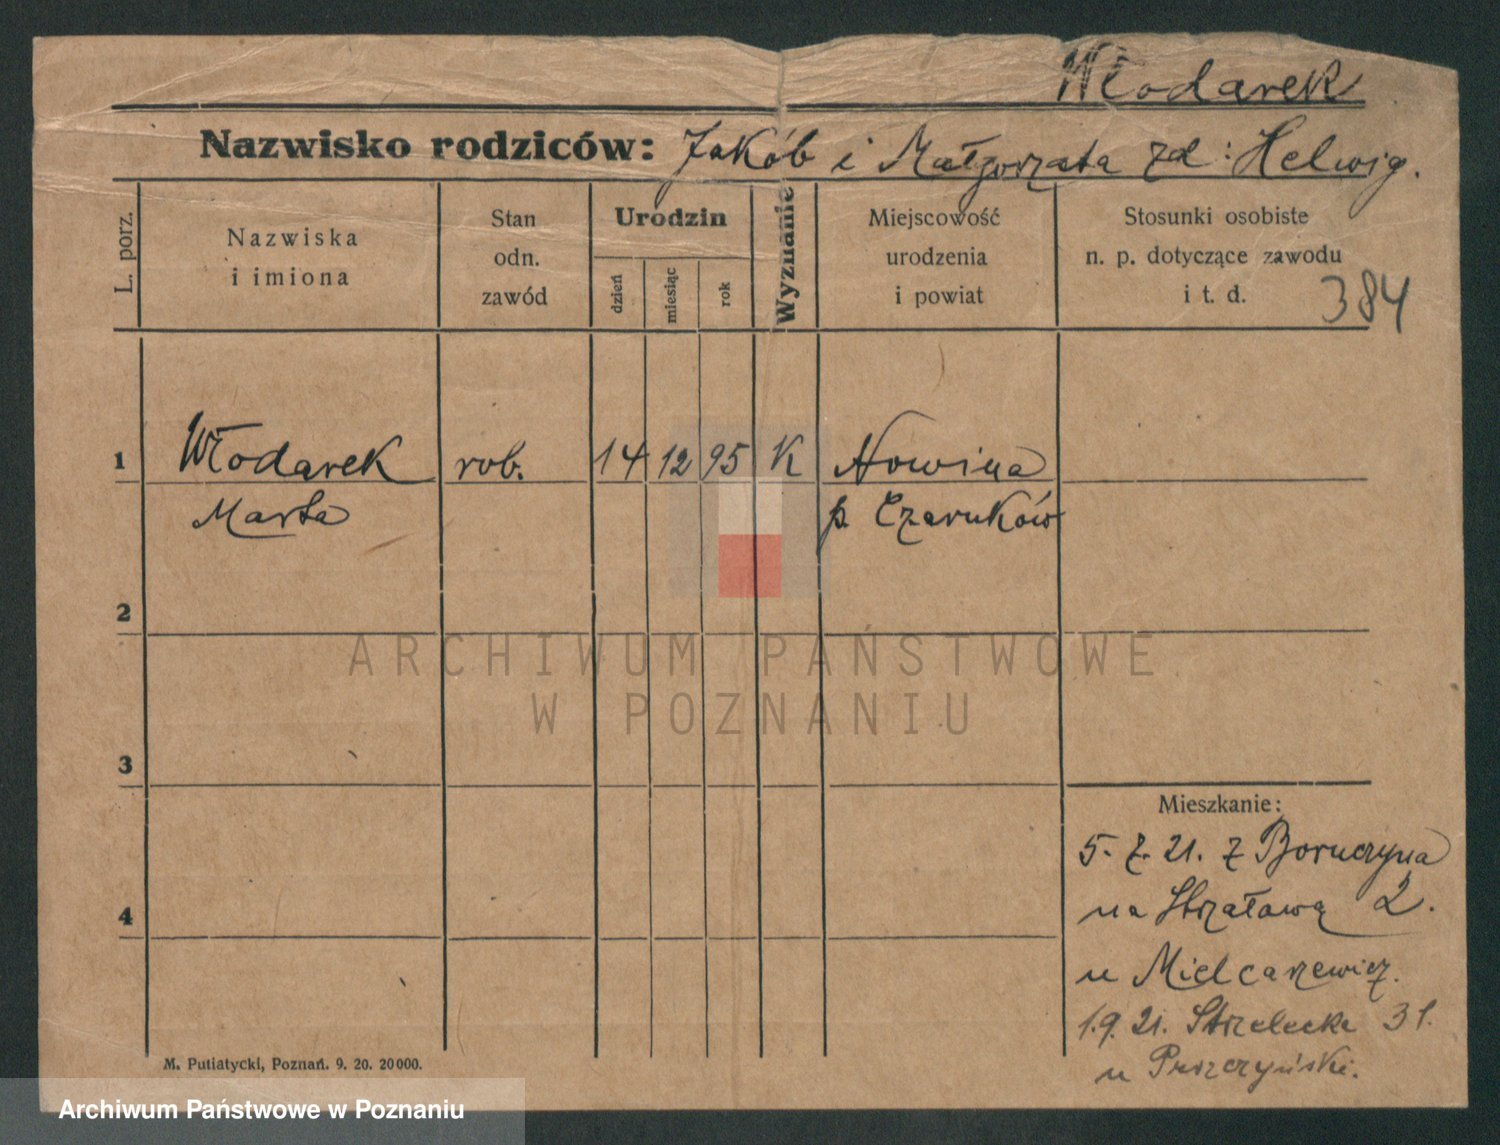 Włodarek
Nazwisko rodziców: Jakób i Małgorzata zd: Helwig.
L. porz.
Nazwiska
i imiona
Stan
odn.
zawód
Urodzin
dzień
miesiąc
rok
Wyznanie
Miejscowość
urodzenia
i powiat
Stosunki osobiste
n. p. dotyczące zawodu
i t. d.
384
1 Włodarek rob. 14 12 95 K Nowina
Marta p. Czarnków
2
3
4
Mieszkanie:
5. 7. 21. z Boruczyna
na Strzałową 2.
u Mielcarzewicz.
1.9.21. Strzelecka 31.
u
M. Putiatycki, Poznań. 9. 20. 20000.
ARCHIWUM PAŃSTWOWE
W POZNANIU
Archiwum Państwowe w Poznaniu